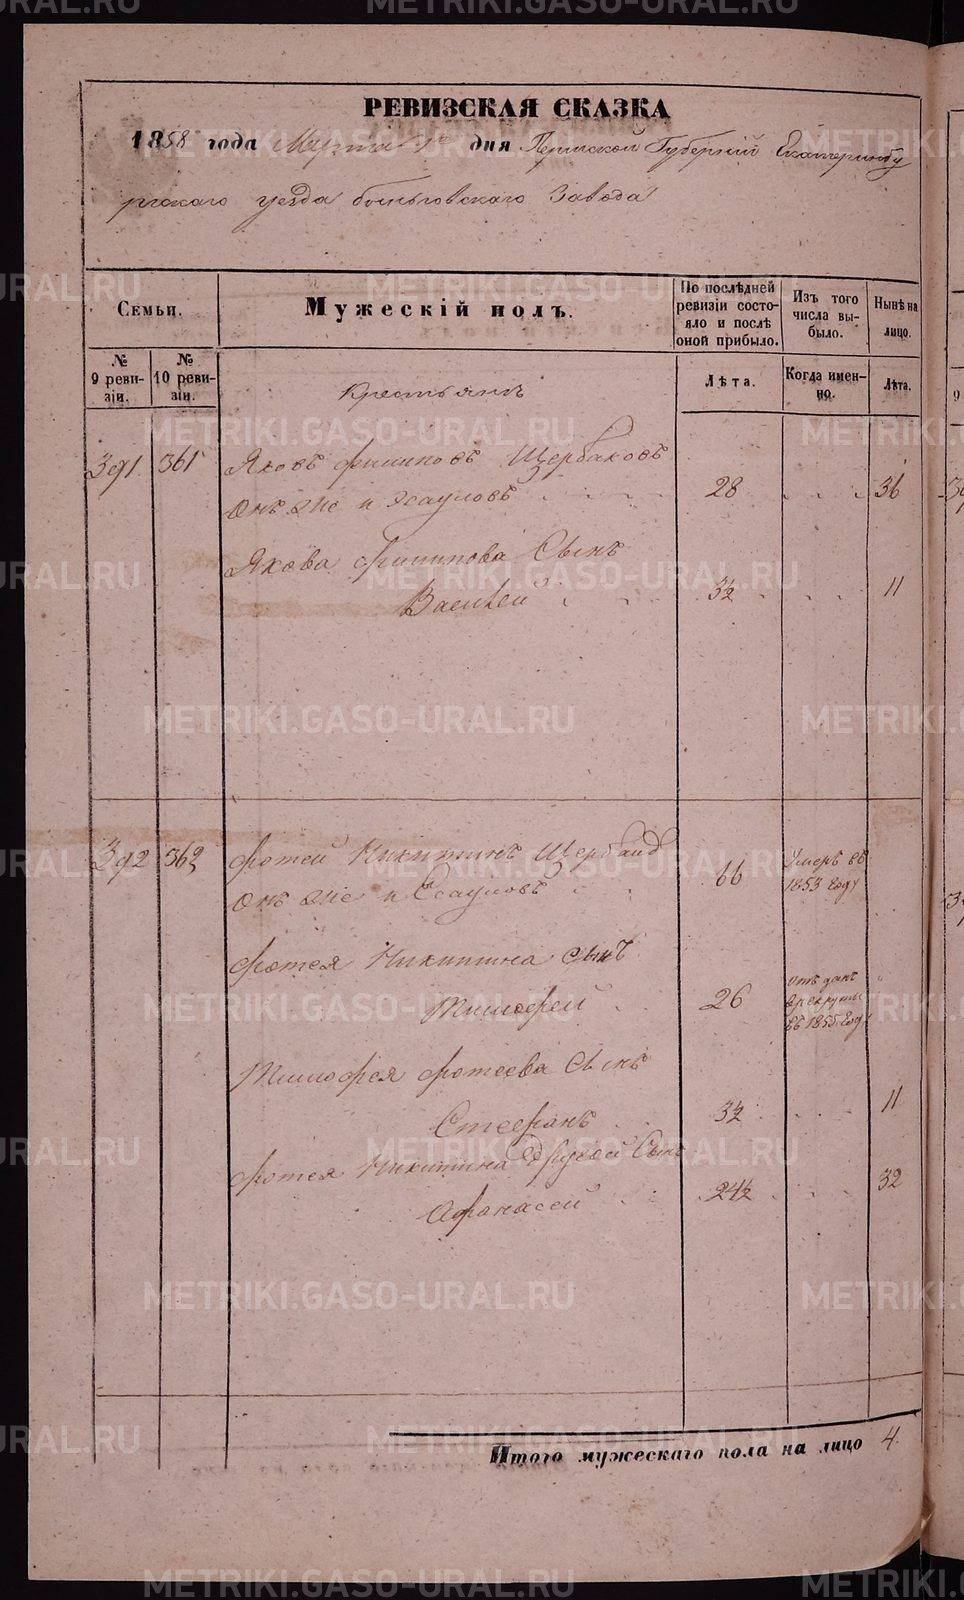 РЕВИЗСКАЯ СКАЗКА
1858 года Марта 1го дня Пермской Губернии Екатеринбу
ргскаго уезда быньговскаго Завода
Семьи.
Мужескій полъ.
По послѣдней ревизіи состояло и послѣ оной прибыло.
Изъ того числа выбыло.
Нынѣ на лицо.
№ 9 ревизіи.
№ 10 ревизіи.
Лѣта.
Когда именно.
Лѣта.
Крестьянъ
391 361 Яковъ филиповъ Щербаковъ
Онъ же и Эсауловъ 28 36
Якова филипова Сынъ
Василей 3½ 11
392 362 фотей Никитинъ Щербаков
Онъ же и Есауловъ 66 Умеръ въ 1853 году
фотея Никитина сынъ
Тимофей 26 отъ данъ в рекруты въ 1855 году
Тимофея фотеева Сынъ
Стефанъ 3½ 11
фотея Никитина другой Сынъ
Афонасей 24½ 32
Итого мужескаго пола на лицо 4
METRIKI.GASO-URAL.RU